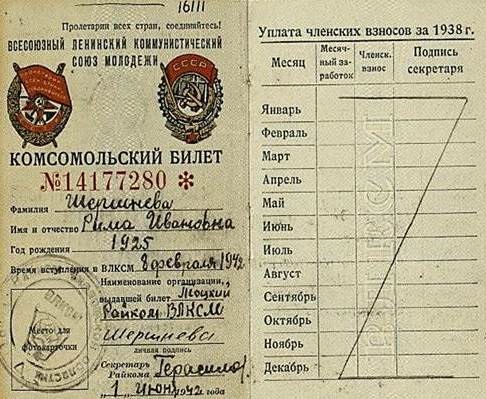 Пролетарии всех стран, соединяйтесь!
ВСЕСОЮЗНЫЙ ЛЕНИНСКИЙ КОММУНИСТИЧЕСКИЙ
СОЮЗ МОЛОДЕЖИ
СССР
КОМСОМОЛЬСКИЙ БИЛЕТ
№14177280 *
Фамилия Шершнева
Имя и отчество Рима Ивановна
Год рождения 1925
Время вступления в ВЛКСМ 8 февраля 1942
Наименование организации,
выдавшей билет
Райком ВЛКСМ
Место для
фотокарточки
Шершнева
личная подпись
Секретарь
Райкома Герасимов
"1" июня 1942 года
Уплата членских взносов за 1938 г.
Месяц Месяч- ный за- работок Членск. взнос Подпись секретаря
Январь
Февраль
Март
Апрель
Май
Июнь
Июль
Август
Сентябрь
Октябрь
Ноябрь
Декабрь